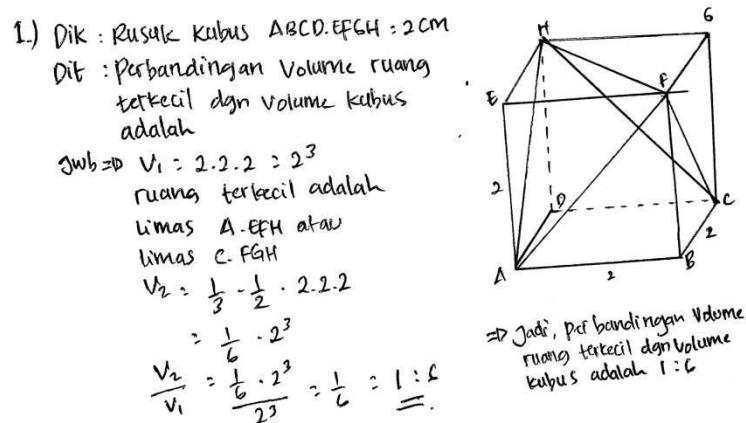 1.) Dik : Rusuk kubus ABCD.EFGH = 2 cm
Dit : Perbandingan Volume ruang
terkecil dgn volume kubus
adalah
Jwb => V₁ = 2.2.2 = 2³
ruang terkecil adalah
limas A.EFH atau
limas C.FGH
V₂ = 1/3 . 1/2 . 2.2.2
= 1/6 . 2³
V₂/V₁ = (1/6 . 2³)/2³ = 1/6 = 1 : 6
H
G
E
F
2
D
C
2
A
2
B
=> Jadi, perbandingan Volume
ruang terkecil dgn volume
kubus adalah 1:6